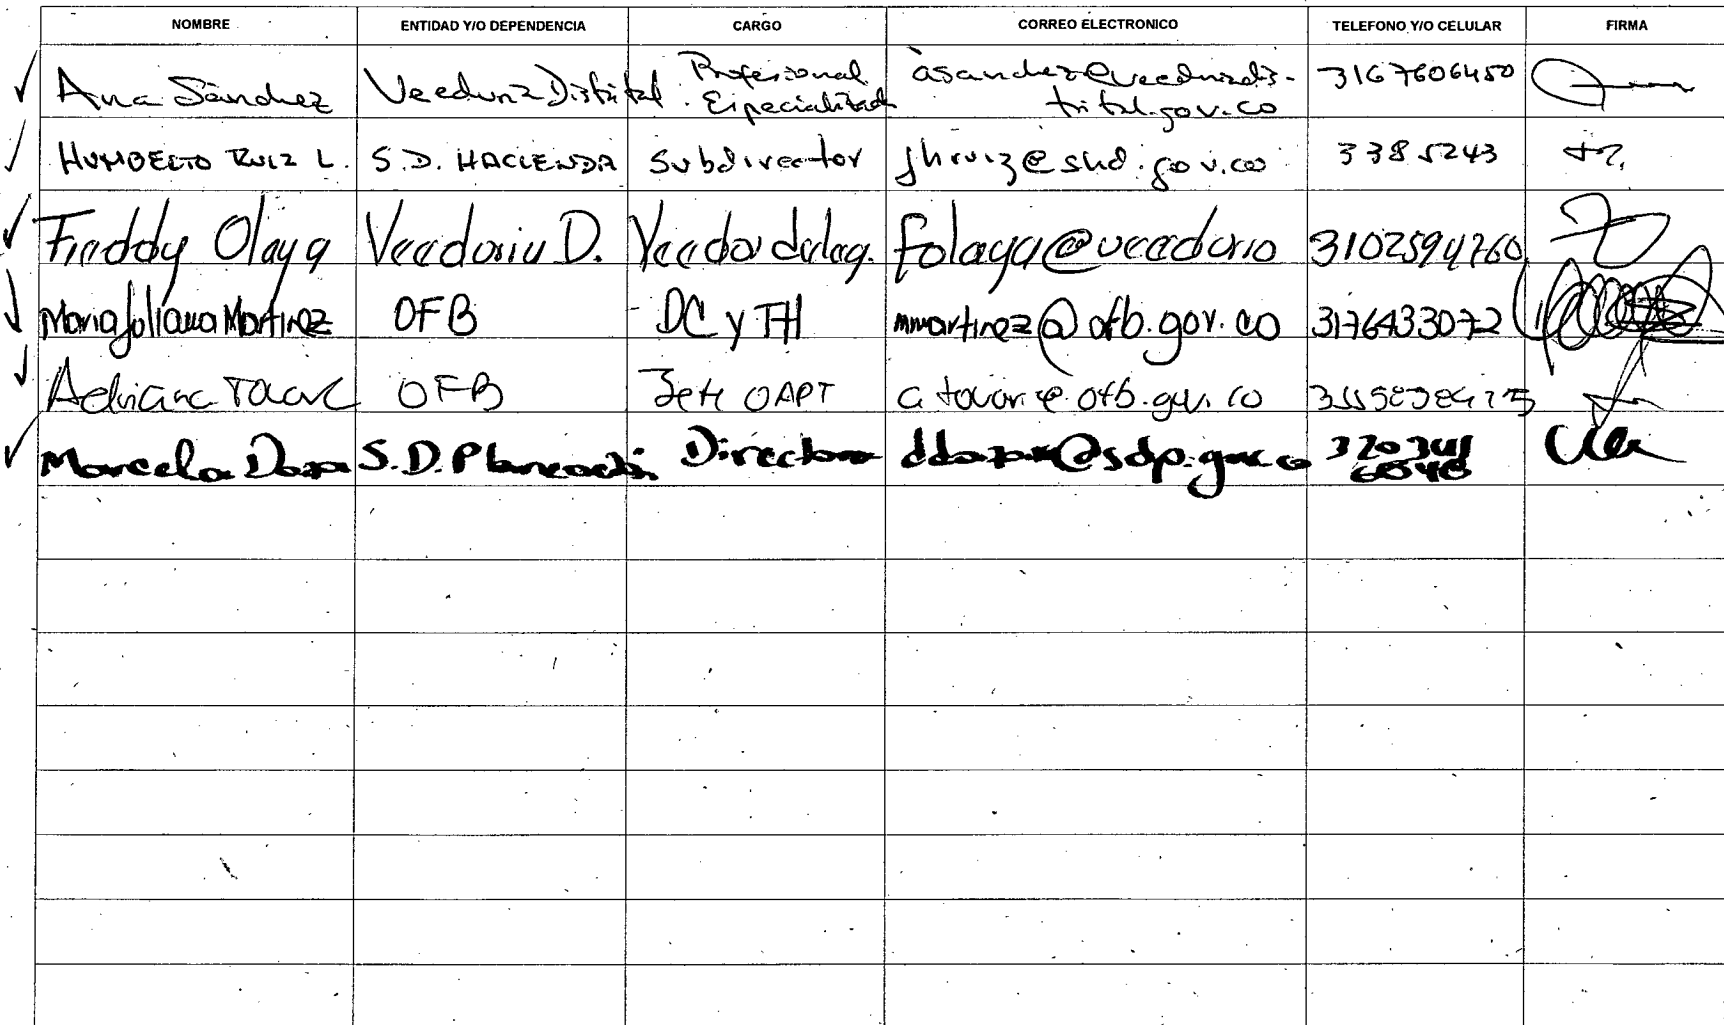 NOMBRE ENTIDAD Y/O DEPENDENCIA CARGO CORREO ELECTRONICO TELEFONO Y/O CELULAR FIRMA
Ana Sánchez Veeduría Distrital Profesional Especializado asanchez@veeduriadis-
trital.gov.co 3167606450
HUMBERTO RUIZ L. S.D. HACIENDA Subdirector jhruiz@shd.gov.co 3385243
Freddy Olaya Veeduria D. Veedor deleg. folaya@veeduria 3102594260
Maria Juliana Martinez OFB DC y TH mmartinez@ofb.gov.co 3176433072
Adriana Tovar OFB Jefe OAPT atovar@ofb.gov.co
Marcela Daza S.D. Planeación Directora @sdp.gov.co 320341